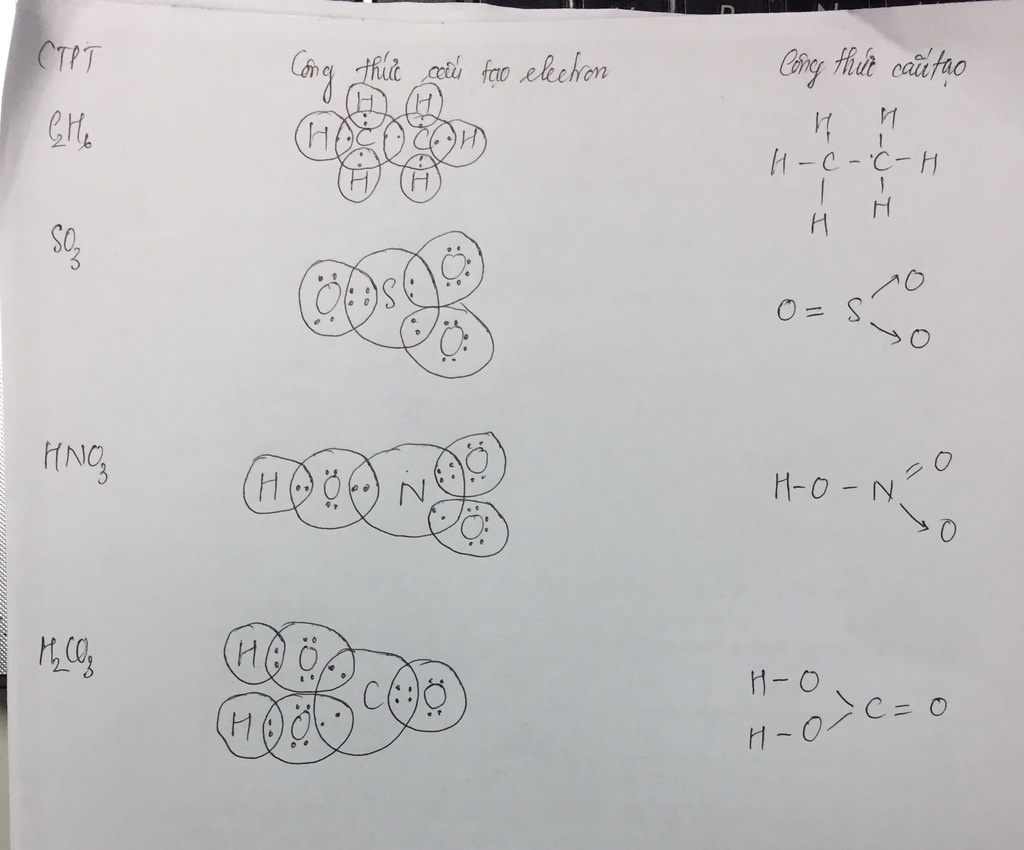 CTPT Công thức cấu tạo electron Công thức cấu tạo
C₂H₆
H H
H C C H
H H
H H
H – C – C – H
H H
SO₃
O S O
O
O = S O
O
HNO₃
H O N O
O
H-O – N = O
O
H₂CO₃
H O
C O
H O
H – O
C = O
H – O